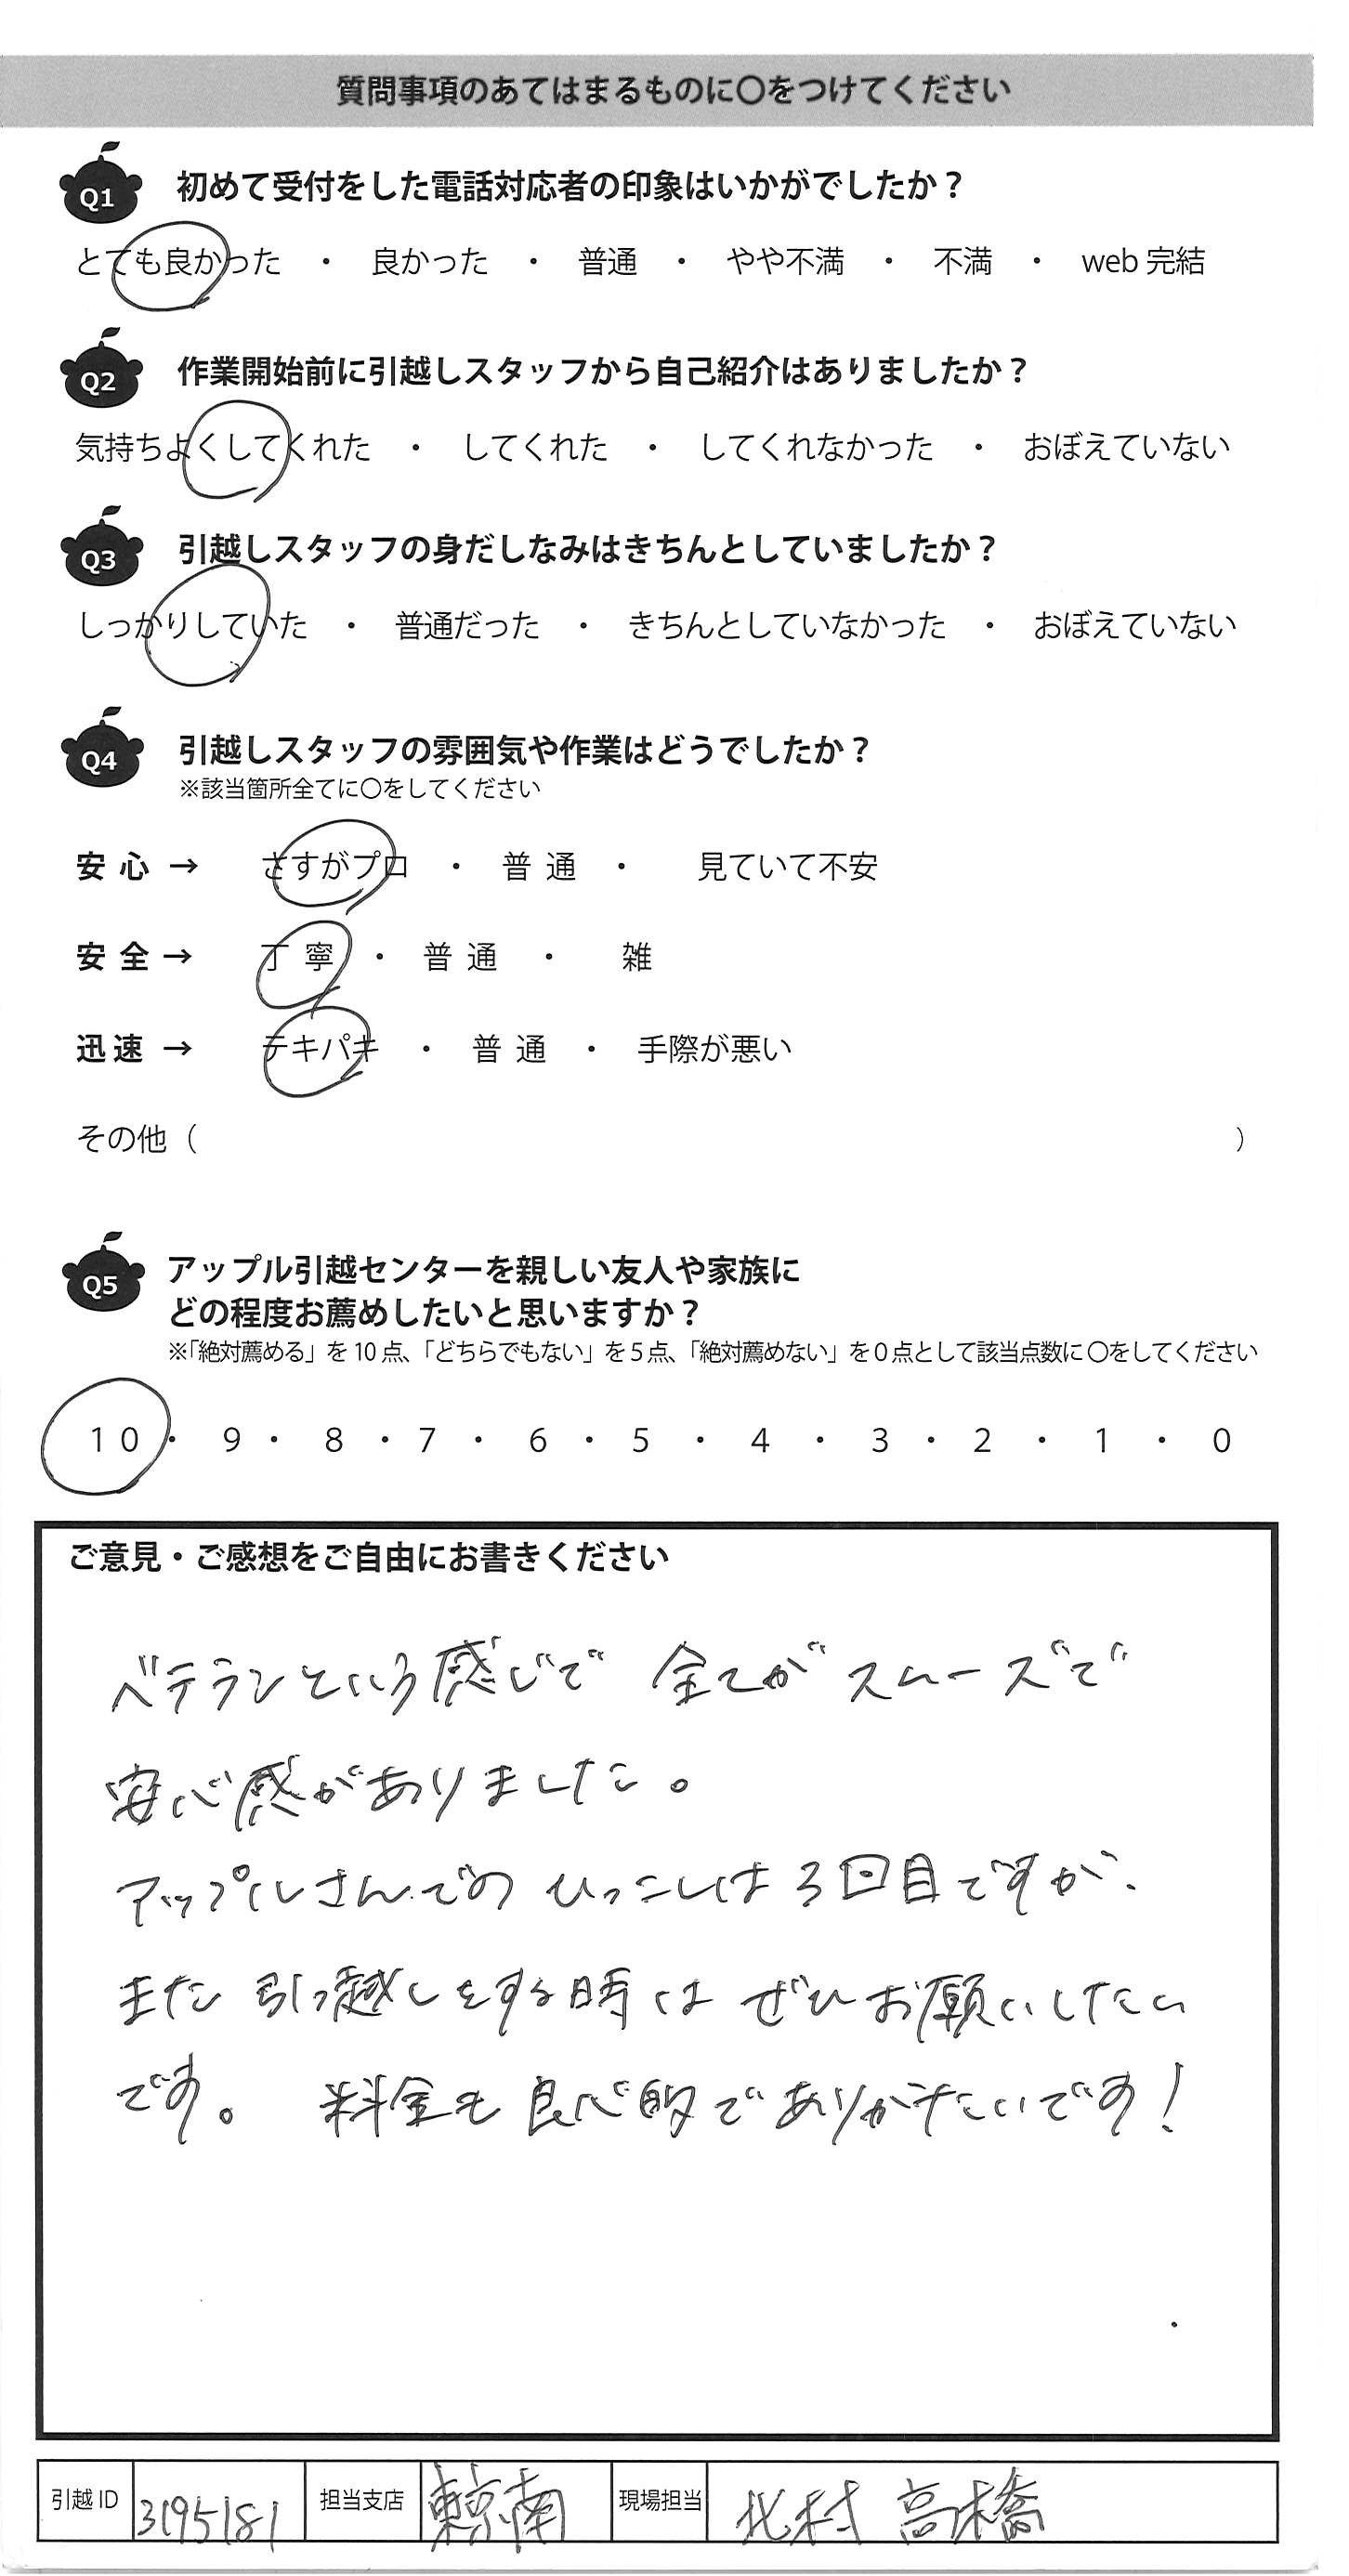 質問事項のあてはまるものに〇をつけてください
Q1 初めて受付をした電話対応者の印象はいかがでしたか？
とても良かった ・ 良かった ・ 普通 ・ やや不満 ・ 不満 ・ web 完結
Q2 作業開始前に引越しスタッフから自己紹介はありましたか？
気持ちよくしてくれた ・ してくれた ・ してくれなかった ・ おぼえていない
Q3 引越しスタッフの身だしなみはきちんとしていましたか？
しっかりしていた ・ 普通だった ・ きちんとしていなかった ・ おぼえていない
Q4 引越しスタッフの雰囲気や作業はどうでしたか？
※該当箇所全てに〇をしてください
安心 → さすがプロ ・ 普通 ・ 見ていて不安
安全 → 丁寧 ・ 普通 ・ 雑
迅速 → テキパキ ・ 普通 ・ 手際が悪い
その他（ ）
Q5 アップル引越センターを親しい友人や家族に
どの程度お薦めしたいと思いますか？
※「絶対薦める」を 10 点、「どちらでもない」を 5 点、「絶対薦めない」を 0 点として該当点数に 〇をしてください
10 ・ 9 ・ 8 ・ 7 ・ 6 ・ 5 ・ 4 ・ 3 ・ 2 ・ 1 ・ 0
ご意見・ご感想をご自由にお書きください
ベテランという感じで 全てがスムーズで
安心感がありました。
アップルさんでの ひっこしは 3回目ですが、
また 引っ越しをする時は ぜひお願いしたい
です。 料金も 良心的でありがたいです！
引越 ID 3195181 担当支店 東京南 現場担当 北村 高橋